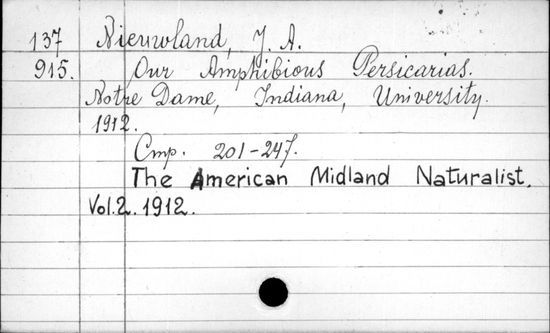 137 Nieuwland, J. A.
915. Our Amphibious Persicarias.
Notre Dame, Indiana, University.
1912.
Cmp. 201-247.
The American Midland Naturalist.
Vol.2. 1912.